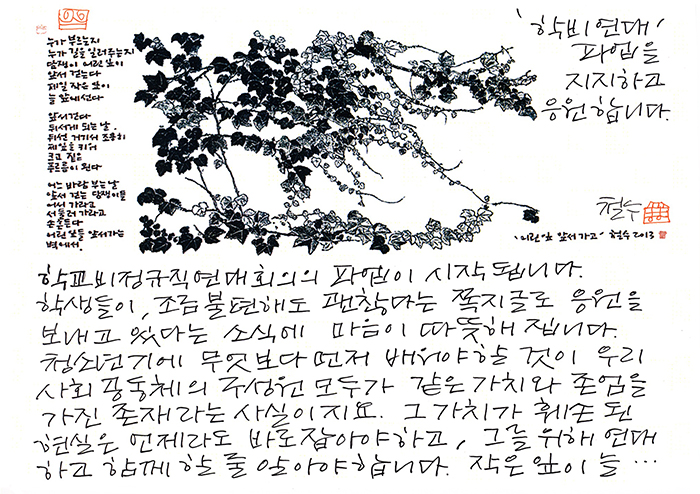 누가 부르는지
누가 길을 일러주는지
담쟁이 어린 잎이
앞서 걷는다
제일 작은 잎이
늘 앞에 선다
앞서간다
뒤서게 되는 날,
뒤선 거기서 조용히
제 잎을 키워
크고 짙은
푸르름이 된다
어느 바람 부는 날
앞서 걷는 담쟁이들
어서 가라고
서둘러 가라고
손 흔든다
어린 잎들 앞서가는
벽에서.
'학비연대'
파업을
지지하고
응원합니다.
철수
'어린 잎 앞서 가고' 철수 2013
학교비정규직연대회의의 파업이 시작됩니다.
학생들이, 조금 불편해도 괜찮다는 쪽지글로 응원을
보내고 있다는 소식에 마음이 따뜻해집니다.
청소년기에 무엇보다 먼저 배워야 할 것이 우리
사회 공동체의 구성원 모두가 같은 가치와 존엄을
가진 존재라는 사실이지요. 그 가치가 훼손된
현실은 언제라도 바로잡아야 하고, 그를 위해 연대
하고 함께 할 줄 알아야 합니다. 작은 잎이 늘…